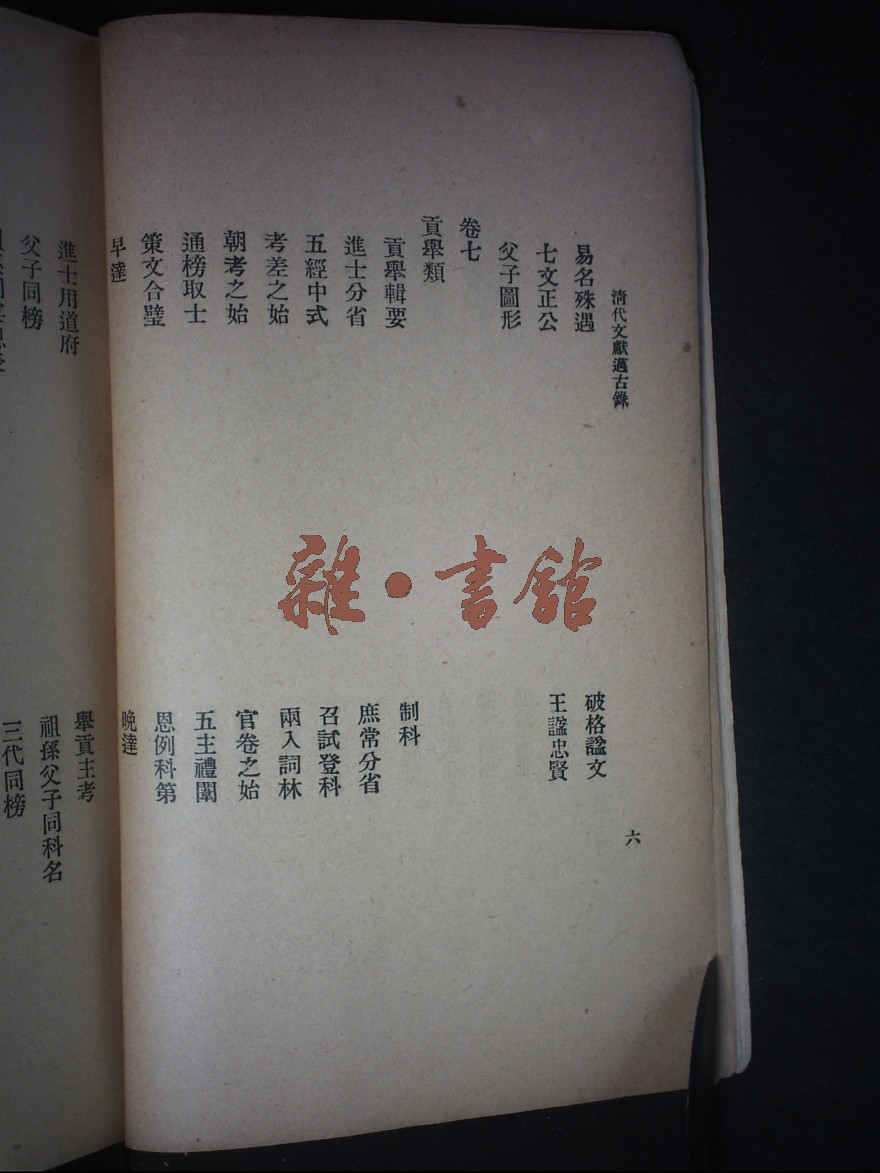 清代文獻邁古錄
六
易名殊遇
破格諡文
七文正公
王諡忠賢
父子圖形
卷七
貢舉類
貢舉輯要
制科
進士分省
庶常分省
五經中式
召試登科
考差之始
兩入詞林
朝考之始
官卷之始
通榜取士
五主禮闈
策文合璧
恩例科第
早達
晚達
進士用道府
舉貢主考
父子同榜
祖孫父子同科名
三代同榜
雜·書館